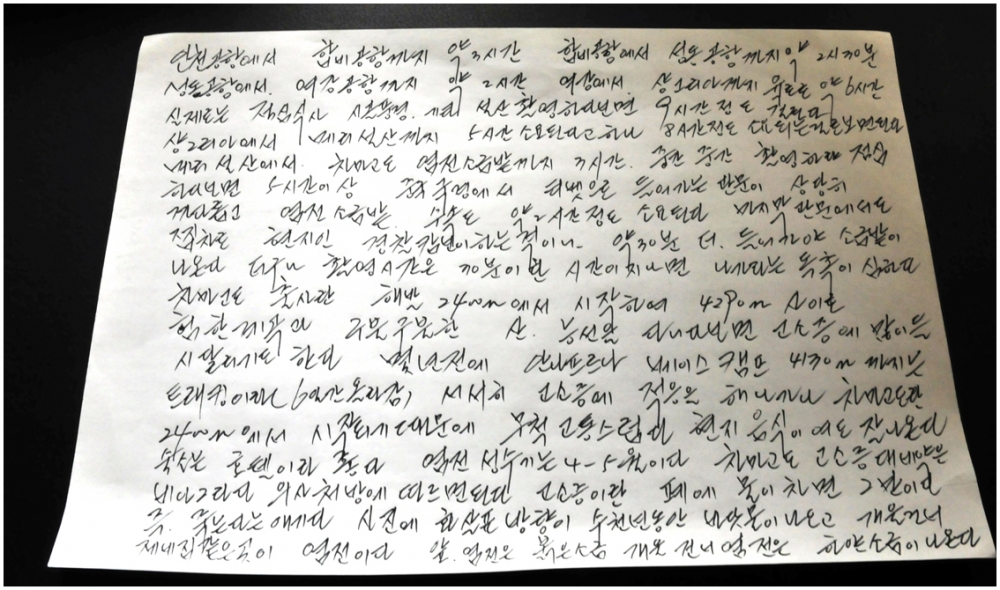 인천공항에서 합비공항까지 약 3시간 합비공항에서 성도공항까지 약 2시30분
성도공항에서. 여강공항까지 약 2시간 여강에서. 샹그리라까지 육로로 약 6시간
실제로는 점심식사 시골풍경. 기타 설산 촬영하다보면 9시간 정도 걸린다
샹그리라에서 매리설산까지 5시간 소요된다고하나 8시간정도 소요되는걸로보면된다
매리설산에서. 차마고도 염전 소금밭까지 3시간. 중간 중간 촬영하랴 점심
하다보면 5시간이상 중국 국경에서 티벳으로 들어가는 관문이 상당히
까다롭고 염전 소금밭. 수속도 약 2시간정도 소요된다 마지막 관문에서도
또 현지인 경찰 약 30분 더. 들어가야 소금밭이
나온다 더구나 촬영시간은 30분이란 시간이지나면 나가라는 독촉이 심하다
차마고도 출사란 해발 2400m에서 시작하여 4290m 사이로
험한계곡과 꾸불꾸불한 산. 능선을 다니다보면 고소증에 많이들
시달리기도 한다 몇년전에 안나프르나 베이스캠프 4130m 까지는
트래킹이라 (6일간올라감) 서서히 고소증에 적응을 해나가나 차마고도란
2400m에서 시작되기때문에 무척 고통스럽다 현지 음식이 여도 잘나온다
숙소는 호텔이라 좋다 염전 성수기는 4-5월이다 차마고도 고소증 대비약은
비아그라다 의사처방에 따르면된다 고소증이란 폐에 물이차면 그만이다
즉. 죽는다는얘기다 사진에 화살표 방향이 수천년동안 바닷물이나오고 개울건너
제네집같은곳이 염전이다 앞. 염전은 붉은소금 개울 건너염전은 하얀소금이나온다